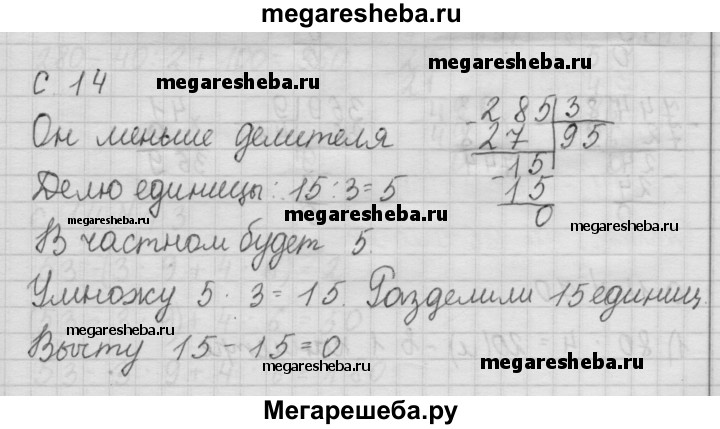 megaresheba.ru
С. 14
megaresheba.ru
megaresheba.ru
Он меньше делителя
285 3
27 95
15
15
0
Делю единицы: 15 : 3 = 5
megaresheba.ru
megaresheba.ru
megaresheba.ru
В частном будет 5.
Умножу 5 · 3 = 15. Разделили 15 единиц.
megaresheba.ru
megaresheba.ru
Вычту 15 - 15 = 0
megaresheba.ru
megaresheba.ru
Мегарешеба.ру